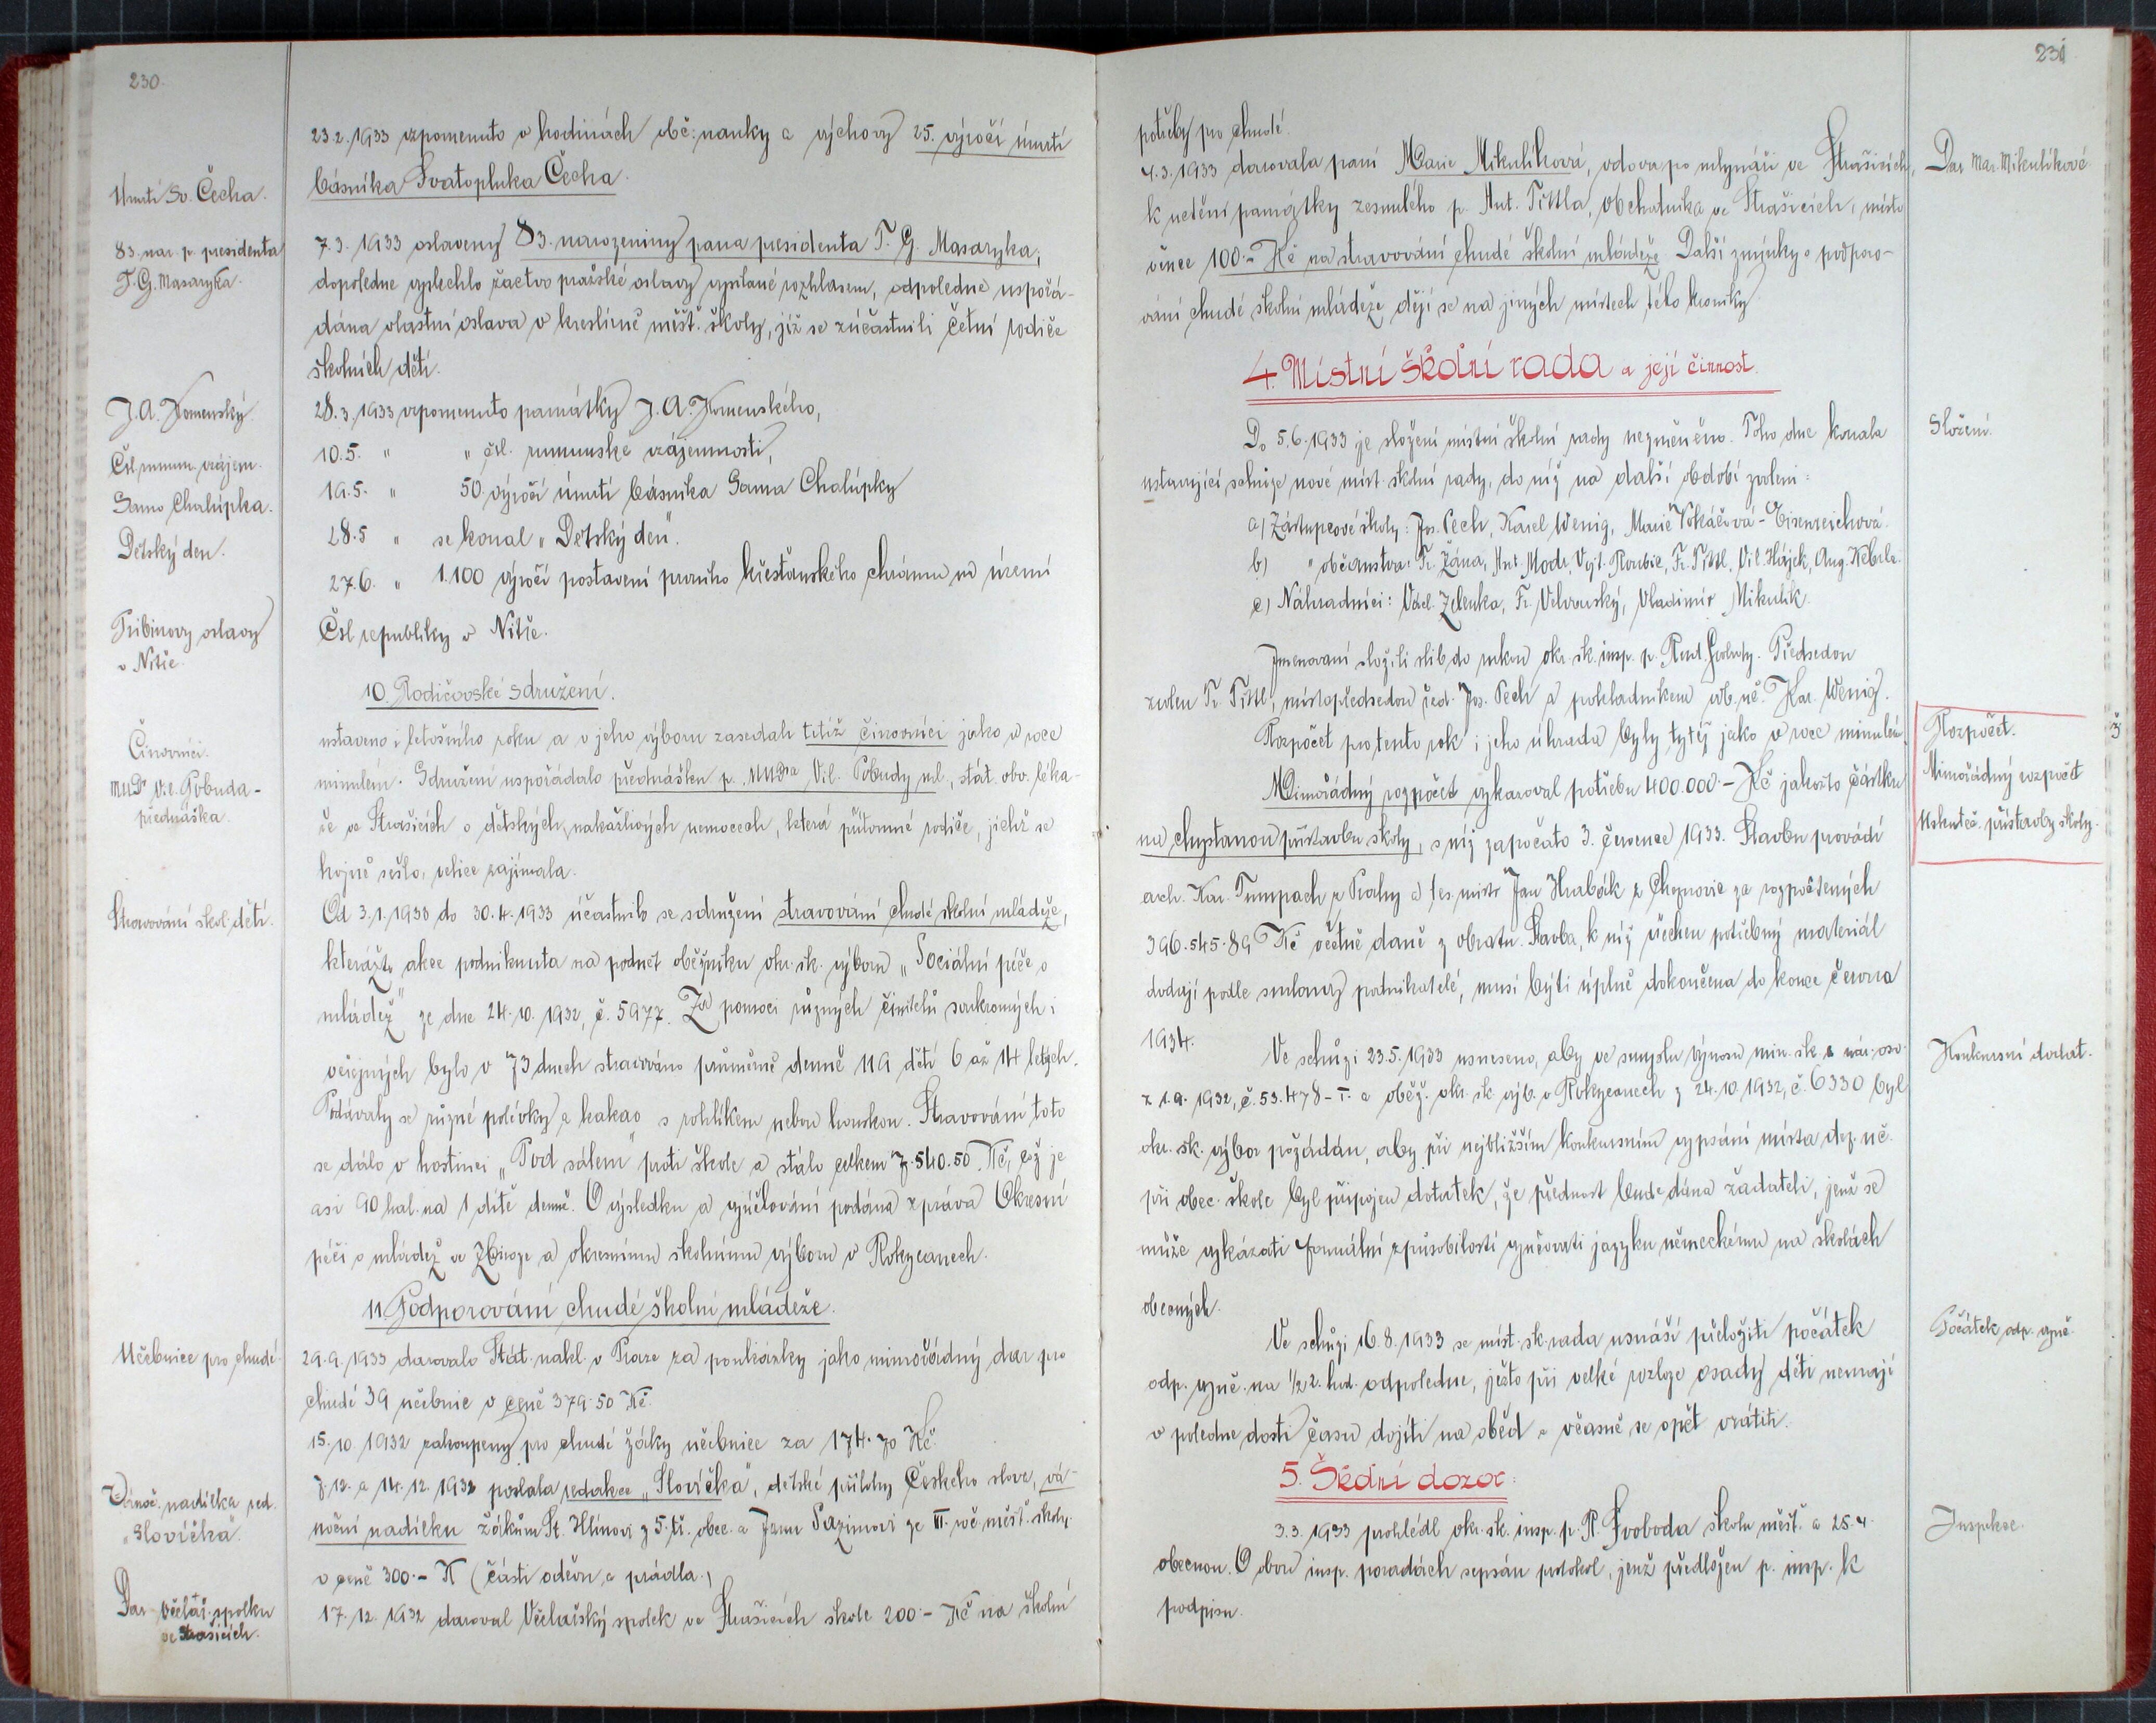 230.
23.2.1933 vzpomenuto v hodinách obč. nauky a výchovy 25. výročí úmrtí
básníka Svatopluka Čecha.
Úmrtí Sv. Čecha.
83. nar. p. presidenta
T. G. Masaryka.
7.3.1933 oslaveny 83. narozeniny pana presidenta T. G. Masaryka,
dopoledne vyslechlo žactvo pražské oslavy vysílané rozhlasem, odpoledne uspořá-
dána vlastní oslava v kreslírně měšť. školy, jíž se zúčastnili četní rodiče
školních dětí.
J. A. Komenský.
28.3.1933 vzpomenuto památky J. A. Komenského,
Čsl. rumun. vzájem.
10.5. " " čsl. rumunské vzájemnosti,
Samo Chalúpka.
19.5. " 50. výročí úmrtí básníka Sama Chalúpky
Dětský den.
28.5 " se konal "Dětský den".
27.6. " 1.100 výročí postavení prvního křesťanského chrámu na území
Pribinovy oslavy
v Nitře.
Čsl. republiky v Nitře.
10. Rodičovské sdružení.
Činovníci.
MUDr Vil. Pobuda -
přednáška.
ustaveno i letošního roku a v jeho výboru zasedali titíž činovníci jako v roce
minulém. Sdružení uspořádalo přednášku p. MUDra Vil. Pobudy ml., stát. obv. léka-
ře ve Strašicích o dětských, nakažlivých nemocech, která přítomné rodiče, jichž se
hojně sešlo, velice zajímala.
Stravování škol. dětí.
Od 3.1.1933 do 30.4.1933 účastnilo se sdružení stravování chudé školní mládeže,
kterážto akce podniknuta na podnět oběžníku okr. šk. výboru "Sociální péče o
mládež" ze dne 24.10.1932, č. 5977. Za pomoci různých činitelů soukromých i
veřejných bylo v 73 dnech stravováno průměrně denně 119 dětí 6 až 14 letých.
Podávaly se různé polévky a kakao s rohlíkem nebo houskou. Stravování toto
se dálo v hostinci "Pod sálem" proti škole a stálo celkem 7.540.50 Kč, což je
asi 90 hal. na 1 dítě denně. O výsledku a vyúčtování podána zpráva Okresní
péči o mládež ve Zbiroze a okresnímu školnímu výboru v Rokycanech.
11. Podporování chudé školní mládeže.
Učebnice pro chudé.
29.9.1933 darovalo Stát. nakl. v Praze za poukázky jako mimořádný dar pro
chudé 39 učebnic v ceně 379.50 Kč.
15.10.1932 zakoupeny pro chudé žáky učebnice za 174.70 Kč.
Vánoč. nadílka red.
"Slovíčka".
7.12. a 14.12.1932 poslala redakce "Slovíčka", dětské přílohy Českého slova, vá-
noční nadílku žákům St. Hlínovi z 5. tř. obec. a Janu Sazimovi ze III. roč. měšť. školy
v ceně 300.- K (části oděvu a prádla.)
Dar včelař. spolku
ve Strašicích.
17.12.1932 daroval Včelařský spolek ve Strašicích škole 200.- Kč na školní
231
potřeby pro chudé.
4.3.1933 darovala paní Marie Mikulíková, vdova po mlynáři ve Strašicích,
Dar Mar. Mikulíkové
k uctění památky zesnulého p. Ant. Tittla, obchodníka ve Strašicích, místo
věnce 100.- Kč na stravování chudé školní mládeže. Další zmínky o podporo-
vání chudé školní mládeže dějí se na jiných místech této kroniky.
4. Místní školní rada a její činnost.
Složení.
Do 5.6.1933 je složení místní školní rady nezměněno. Toho dne konala
ustavující schůze nové míst. školní rady, do níž na další období zvoleni:
a) Zástupcové školy: Jos. Pech, Karel Wenig, Marie Pokáčová - Eisenreichová.
b) " občanstva: Fr. Žána, Ant. Modr, Vojt. Roubic, Fr. Tittl, Vil. Hájek, Aug. Kebrle.
c) Náhradníci: Václ. Zelenka, Fr. Velvarský, Vladimír Mikulík.
Jmenovaní složili slib do rukou okr. šk. insp. p. Rud. Svobody. Předsedou
zvolen Fr. Tittl, místopředsedou řed. Jos. Pech a pokladníkem odb. uč. Kar. Wenig.
Rozpočet.
Rozpočet pro tento rok i jeho úhrada byly tytéž jako v roce minulém.
Mimořádný rozpočet
Mimořádný rozpočet vykazoval potřebu 400.000.- Kč jakožto částku
Uskuteč. přístavby školy.
na chystanou přístavbu školy, s níž započato 3. července 1933. Stavbu provádí
arch. Kar. Tumpach z Prahy a tes. mistr Jan Hrabák z Cheznovic za rozpočtených
396.545.89 Kč včetně daně z obratu. Stavba, k níž všechen potřebný materiál
dodají podle smlouvy podnikatelé, musí býti úplně dokončena do konce června
1934.
Konkursní dodat.
Ve schůzi 23.5.1933 usneseno, aby ve smyslu výnosu min. šk. a nár. osv.
z 1.9.1932, č. 53.478-I. a oběž. okr. šk. výb. v Rokycanech z 24.10.1932, č. 6330 byl
okr. šk. výbor požádán, aby při nejbližším konkursním vypsání místa def. uč.
při obec. škole byl připojen dodatek, že přednost bude dána žadateli, jenž se
může vykázati formální způsobilostí vyučovati jazyku německému na školách
obecných.
Počátek odp. vyuč.
Ve schůzi 16.8.1933 se míst. šk. rada usnáší přeložiti počátek
odp. vyuč. na 1/2 2. hod. odpoledne, ježto při velké rozloze osady děti nemají
v poledne dosti času dojíti na oběd a včasně se opět vrátiti.
5. Školní dozor:
Inspekce.
3.3.1933 prohlédl okr. šk. insp. p. R. Svoboda školu měšť. a 25.4.
obecnou. O obou insp. poradách sepsán protokol, jenž předložen p. insp. k
podpisu.